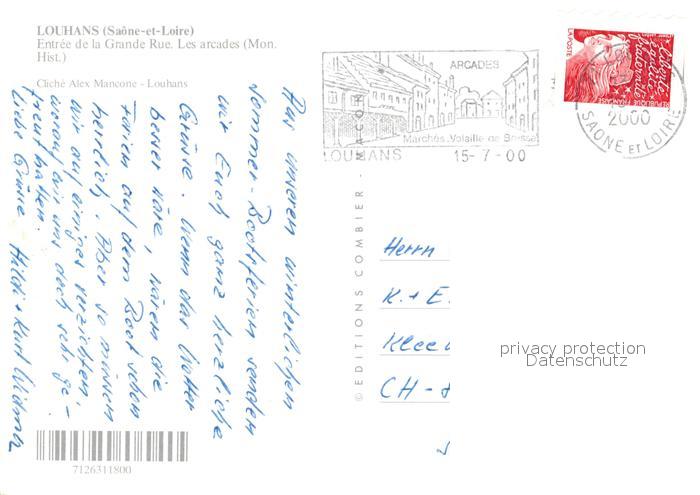 LOUHANS (Saône-et-Loire)
Entrée de la Grande Rue. Les arcades (Mon.
Hist.)
Cliché Alex Mancone - Louhans
Aus unseren winterlichen
Sommer-Bootsferien senden
wir Euch ganz herzliche
Grüsse. Wenn das Wetter
besser wäre, wären die
Ferien auf dem Boot schon
herrlich. Aber so müssen
wir auf einiges verzichten,
worauf wir uns doch sehr ge-
freut hatten.
Liebe Grüsse Hildi + Kurt Widmer
7126311800
© EDITIONS COMBIER - MACON
ARCADES
Marchés Volaille de Bresse
LOUHANS 15-7-00
LA POSTE
Liberté
égalité
fraternité
RÉPUBLIQUE FRANÇAISE
2000
SAONE ET LOIRE
Herrn
K. + E.
Klee
CH -
privacy protection
Datenschutz